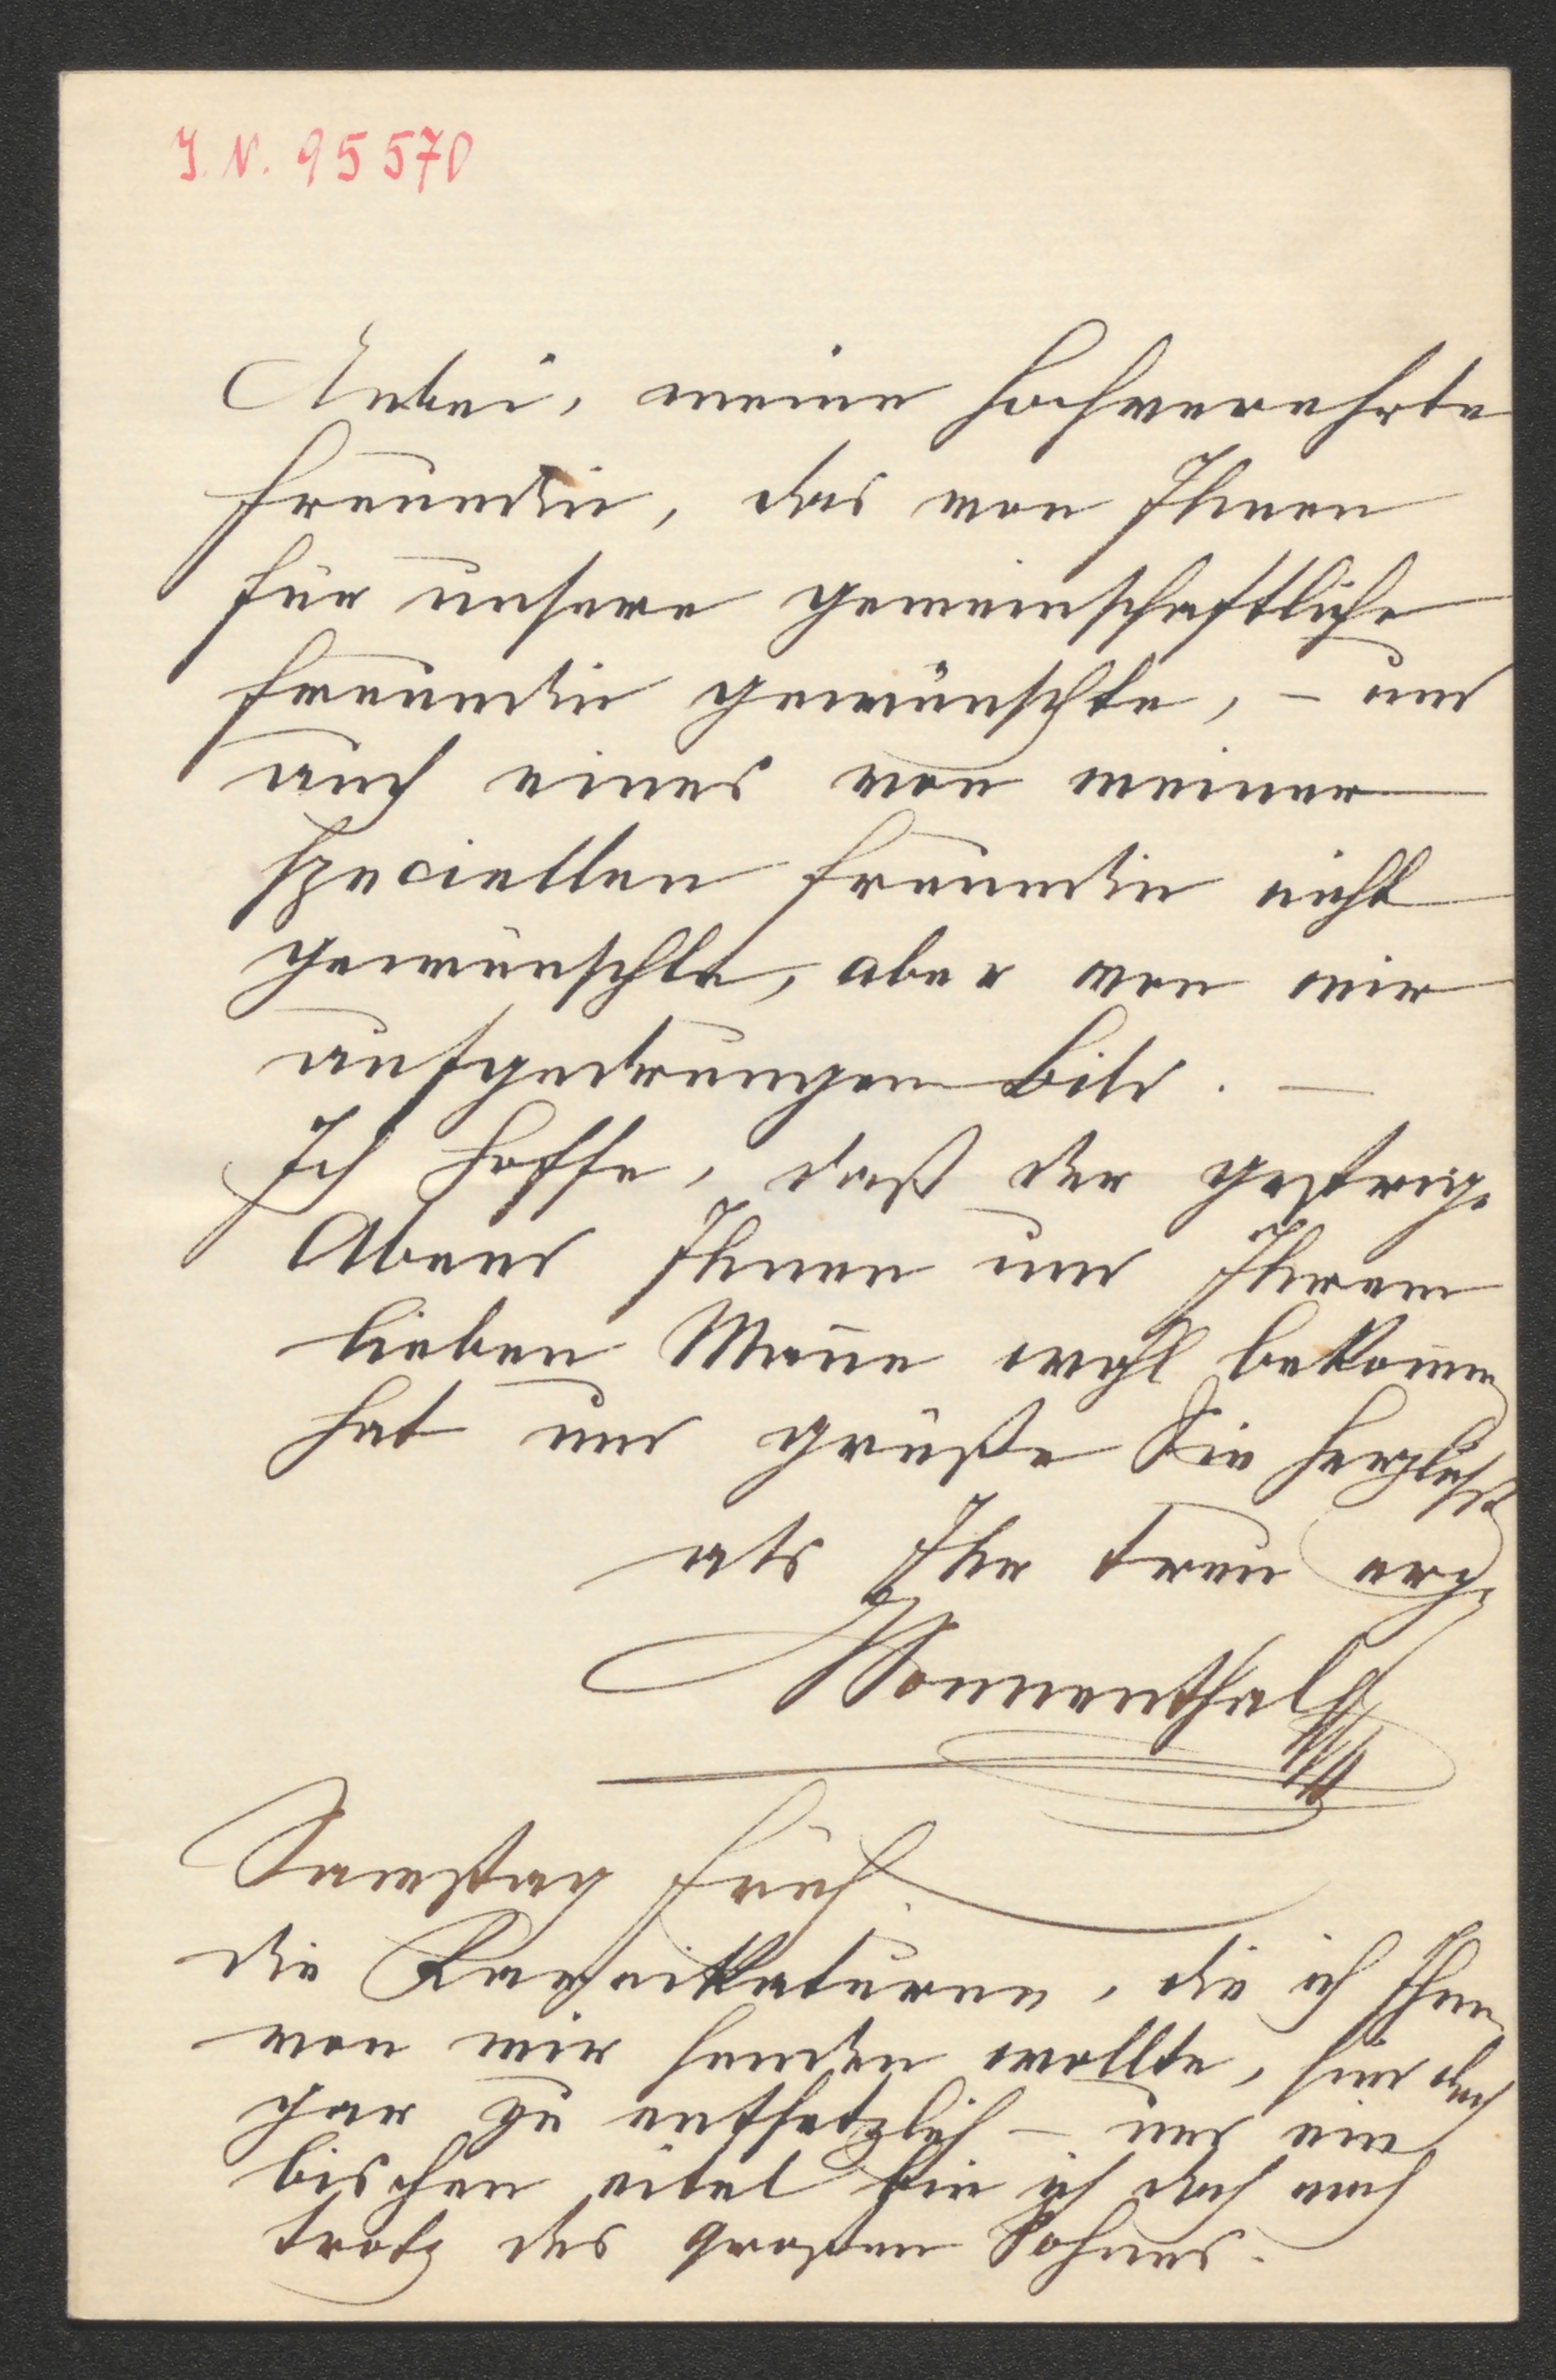 I. N. 95570
Anbei, meine hochverehrte
Freundin, das von Ihnen
für unsere gemeinschaftliche
Freundin gewünschte, – und
auch eines von meiner
speciellen Freundin nicht
gewünschte, aber von mir
aufgedrungen Bild. –
Ich hoffe, daß der gestrige
Abend Ihnen und Ihrem
lieben Mane wohl bekomen
hat und grüße Sie herzlichst
als Ihr treu erg.
Sonnenthal
Samstag früh.
die Karrikaturen, die ich Ihnen
von mir senden wollte, sind doch
gar zu entsetzlich – und ein
bischen eitel bin ich doch noch
trotz des großen Sohnes.